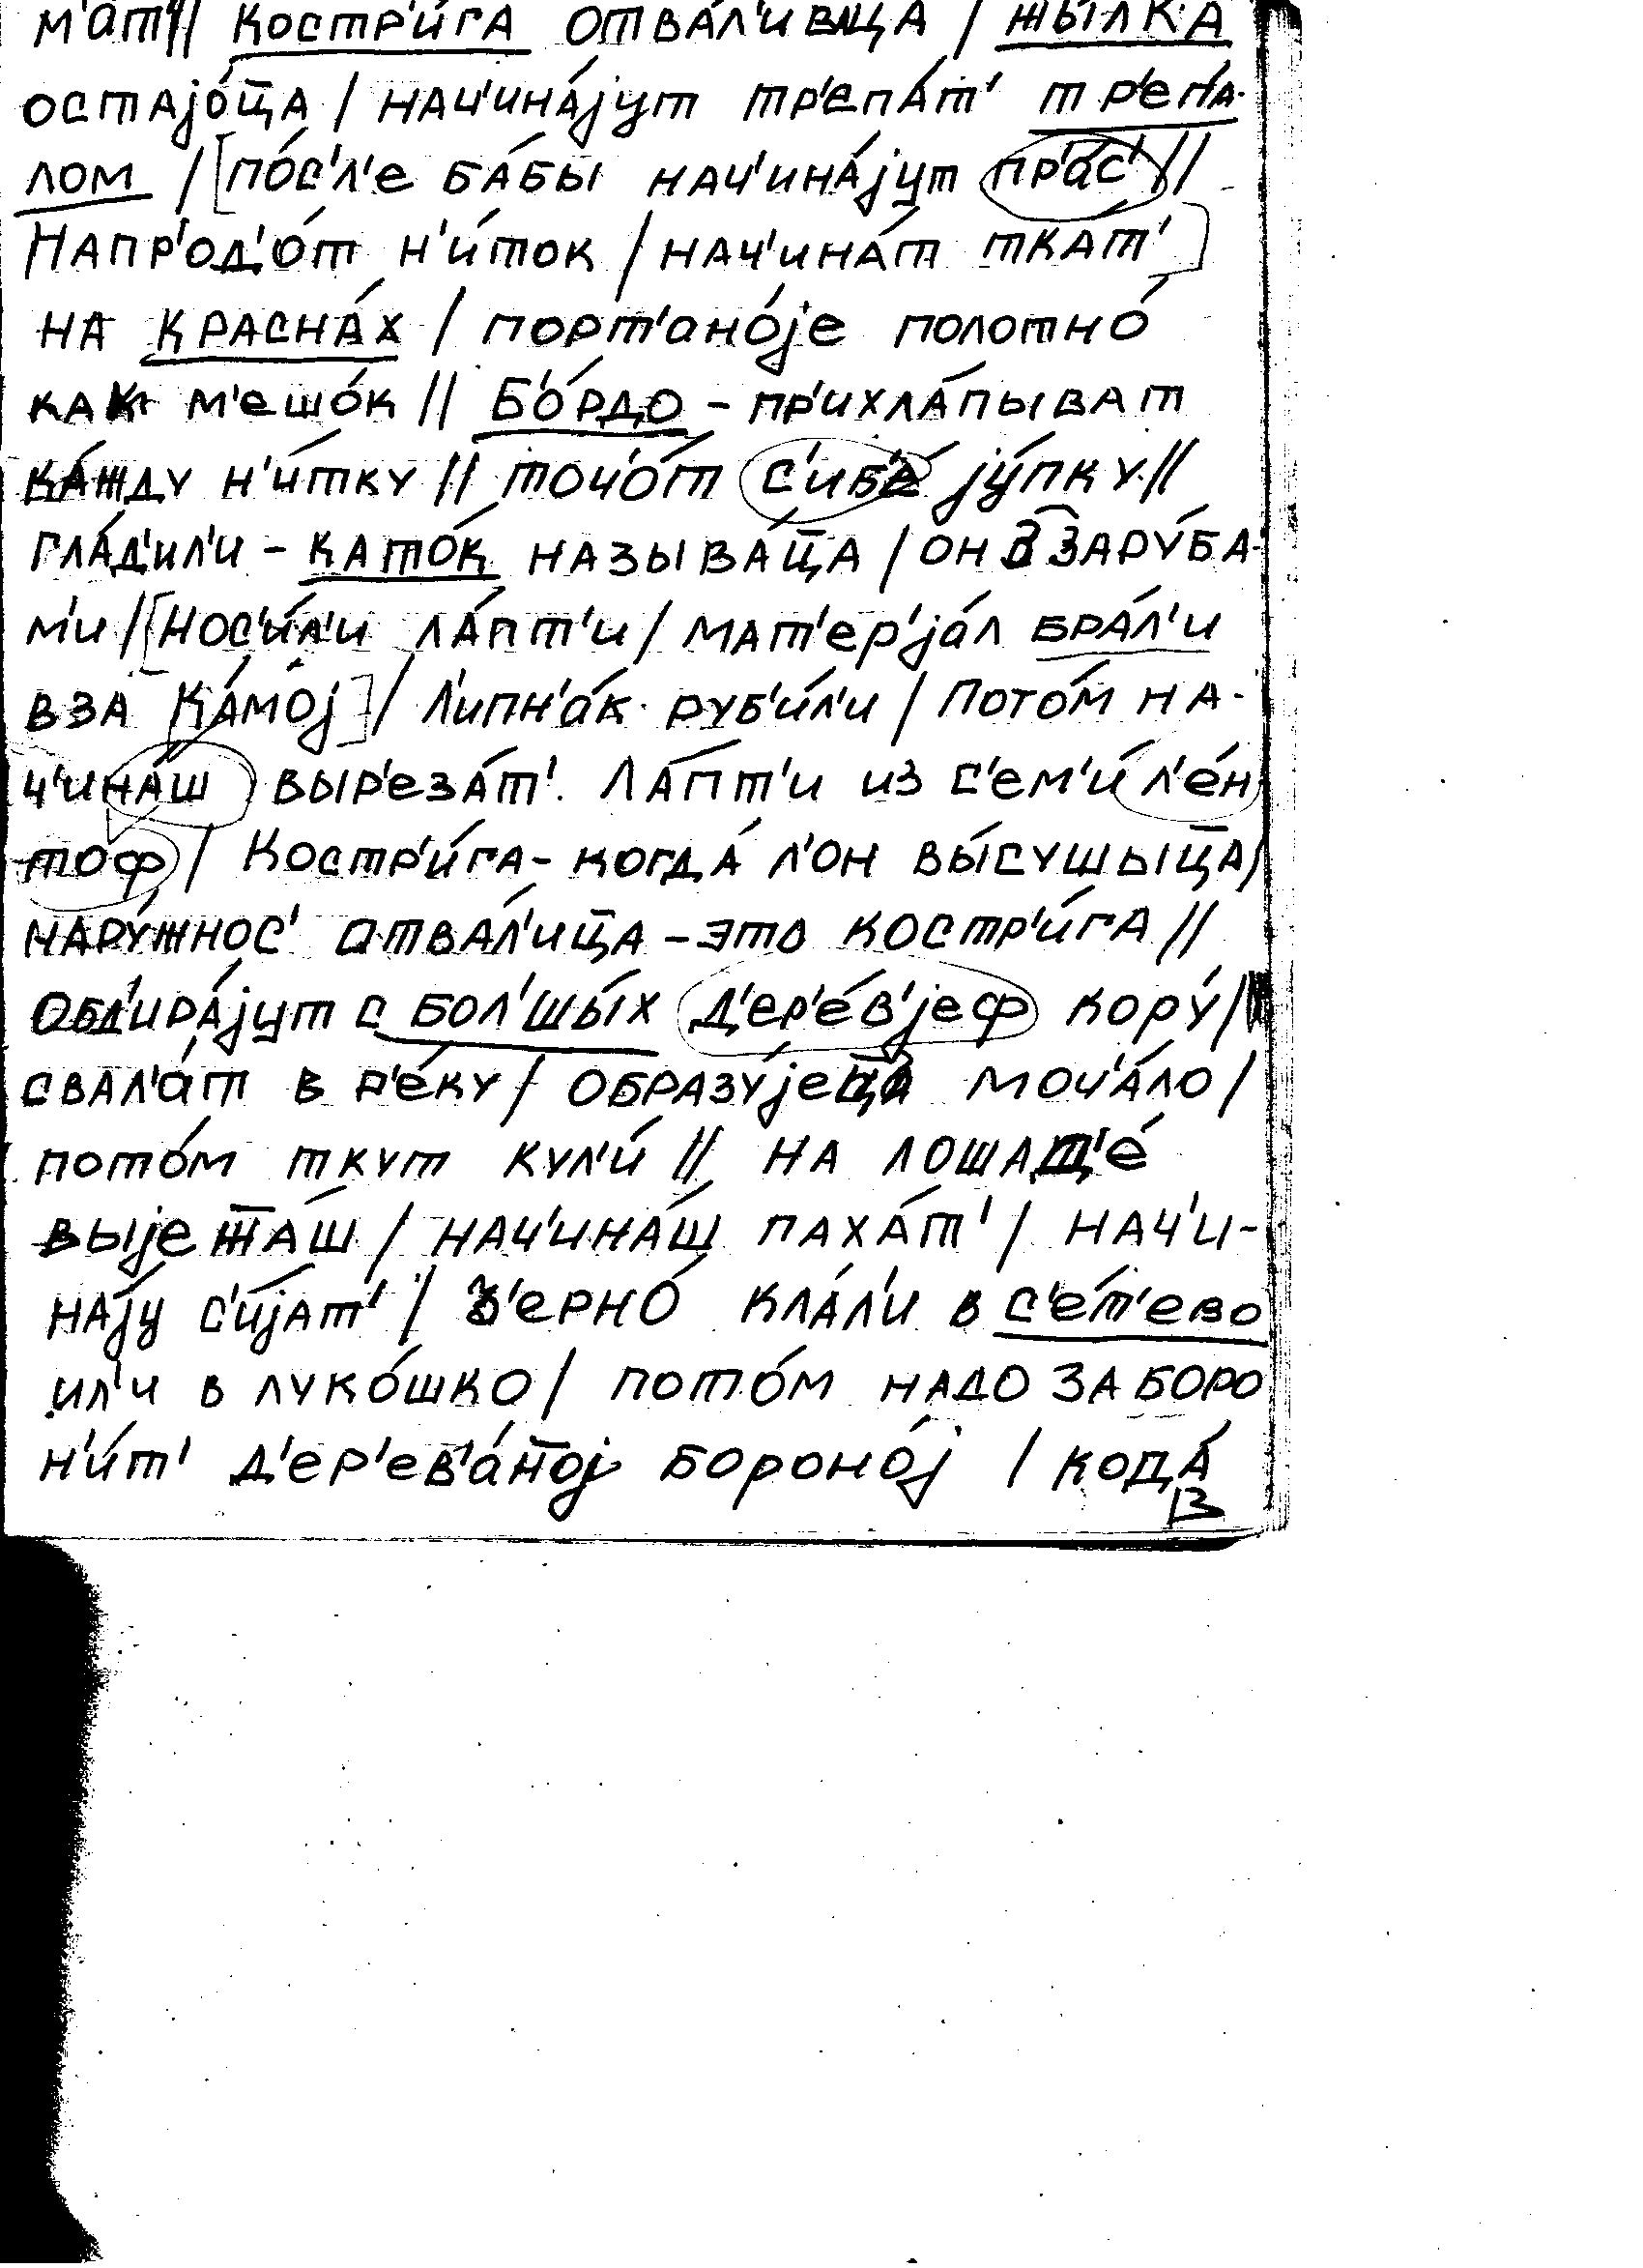 м'ат'// костр'и́га отва́л'ивац̄а / жы́лка
остаjо́ц̄а / нач'ина́jут тр'епа́т' тр'е́па-
лом / [по́с'л'е ба́бы нач'ина́jут пр'а́с' //
Напр'од'о́т н'и́ток / нач'ина́т тка́т']
на красна́х / порт'ано́jе полотно́
как м'ешо́к // Б'о́рдо – пр'ихла́пыват
ка́жду н'и́тку // точ'о́т с'иб'е́ jу́пку //
гла́д'ил'и – като́к называ́ц̄а / он з зару́ба-
м'и / [Нос'и́л'и ла́пт'и / мат'ер'jа́л бра́л'и
вза Ка́моj] / л'ипн'а́к руб'и́л'и / Пото́м на-
ч'ина́ш выр'еза́т'. Ла́пт'и из с'ем'и́ л'е́н
тоф / Костр'и́га – когда́ л'он вы́сушыц̄а /
нару́жнос' отва́л'иц̄а – это костр'и́га //
Обд'ира́jут с бол'шы́х д'ер'е́в'jеф кору́ /
свал'а́т в р'е́ку / образу́jец̄а моч'а́ло /
пото́м ткут кул'и́ // на лошад'е́
выjеж̄а́ш / нач'ина́ш паха́т' / нач'и-
на́jу с'и́jат' / З'ерно́ кла́л'и в с'е́т'ево
ил'и в луко́шко / пото́м надо заборо
н'и́т' д'ер'ев'а́н̄оj бороно́j / кода́